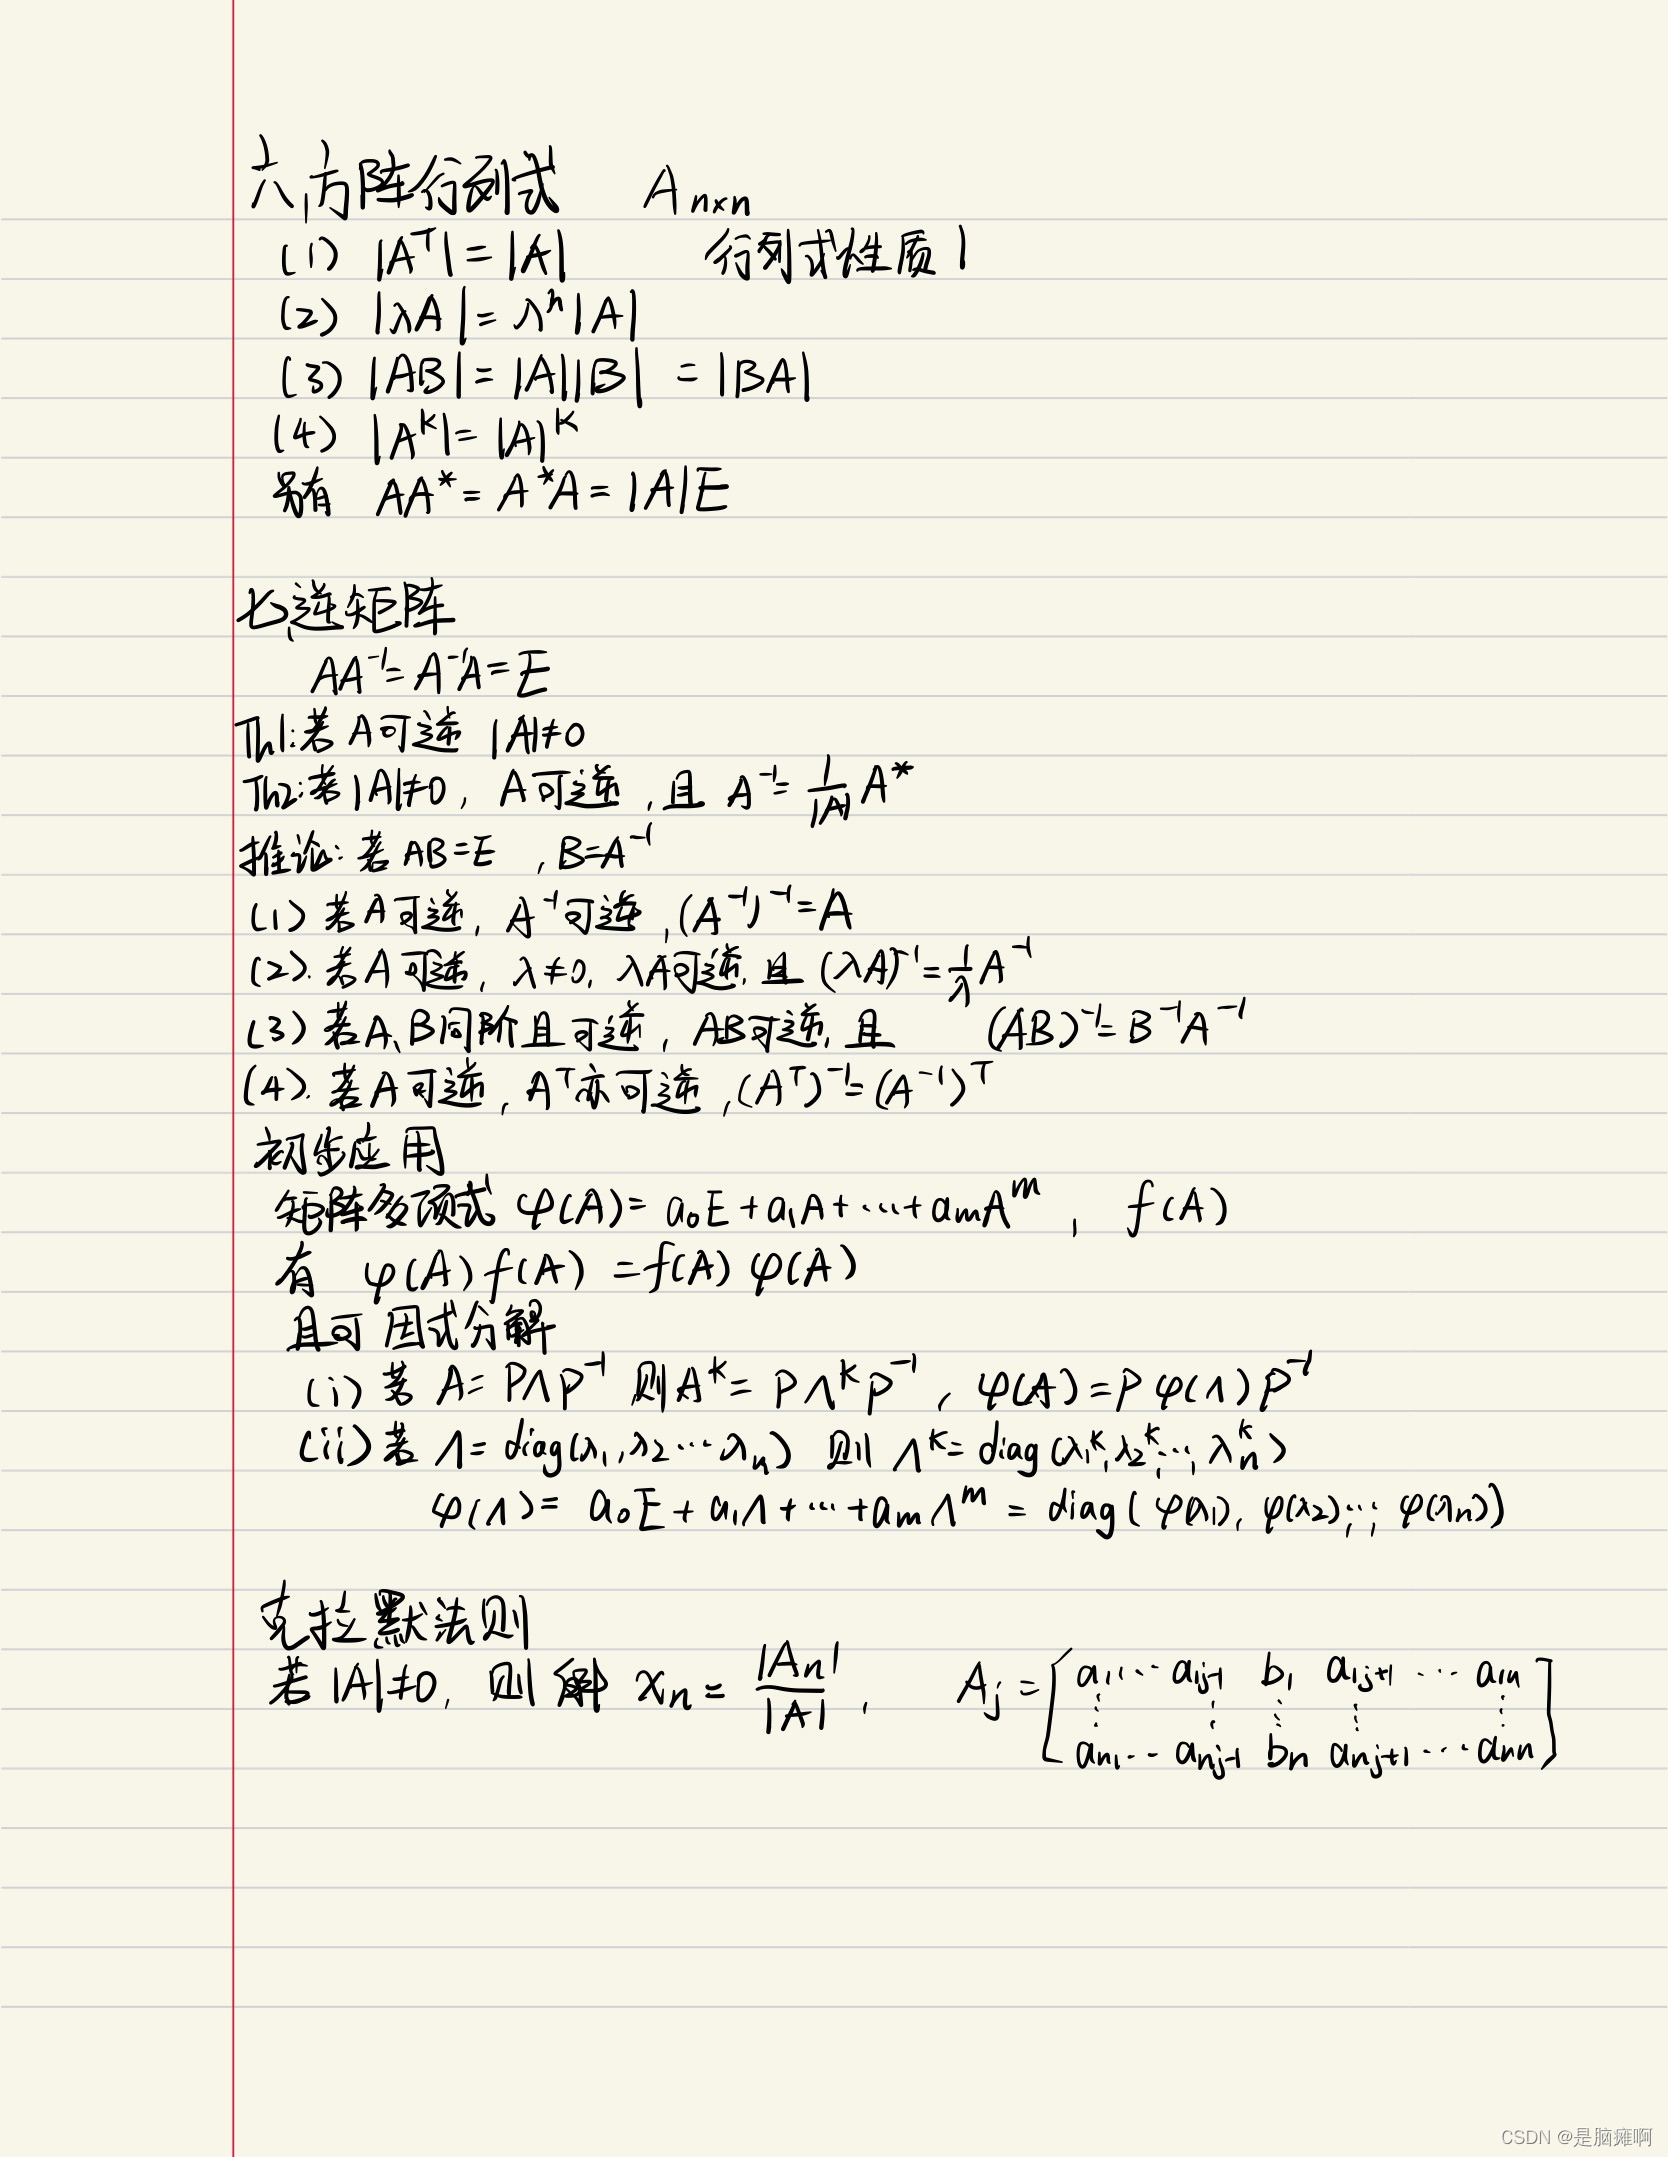 六、方阵行列式 Aₙₓₙ
(1) |Aᵀ| = |A| 行列式性质1
(2) |λA| = λⁿ|A|
(3) |AB| = |A||B| = |BA|
(4) |Aᴷ| = |A|ᴷ
另有 AA* = A*A = |A|E
七、逆矩阵
AA⁻¹ = A⁻¹A = E
Th1: 若A可逆 |A|≠0
Th2: 若|A|≠0, A可逆, 且 A⁻¹ = \frac{1}{|A|} A*
推论: 若 AB=E , B=A⁻¹
(1) 若A可逆, A⁻¹可逆, (A⁻¹)⁻¹ = A
(2). 若A可逆, λ≠0, λA可逆, 且 (λA)⁻¹ = \frac{1}{λ} A⁻¹
(3) 若A、B同阶且可逆, AB可逆, 且 (AB)⁻¹ = B⁻¹A⁻¹
(4). 若A可逆, Aᵀ亦可逆, (Aᵀ)⁻¹ = (A⁻¹)ᵀ
初步应用
矩阵多项式 φ(A) = a₀E + a₁A + ⋯ + aₘAᵐ , f(A)
有 φ(A) f(A) = f(A) φ(A)
且可因式分解
(i) 若 A = PΛP⁻¹ 则 Aᴷ = PΛᴷP⁻¹, φ(A) = Pφ(Λ)P⁻¹
(ii) 若 Λ = diag(λ₁, λ₂ ⋯ λₙ) 则 Λᴷ = diag(λ₁ᵏ, λ₂ᵏ, ⋯, λₙᵏ)
φ(Λ) = a₀E + a₁Λ + ⋯ + aₘΛᵐ = diag( φ(λ₁), φ(λ₂), ⋯, φ(λₙ))
克拉默法则
若 |A|≠0, 则解 xₙ = \frac{|Aₙ|}{|A|} , A_j = [a₁₁ ⋯ a_{1j-1} b₁ a_{1j+1} ⋯ a_{1n}
⋮ ⋮ ⋮ ⋮ ⋮
a_{n1} ⋯ a_{nj-1} bₙ a_{nj+1} ⋯ a_{nn}]
CSDN @是脑瘫啊